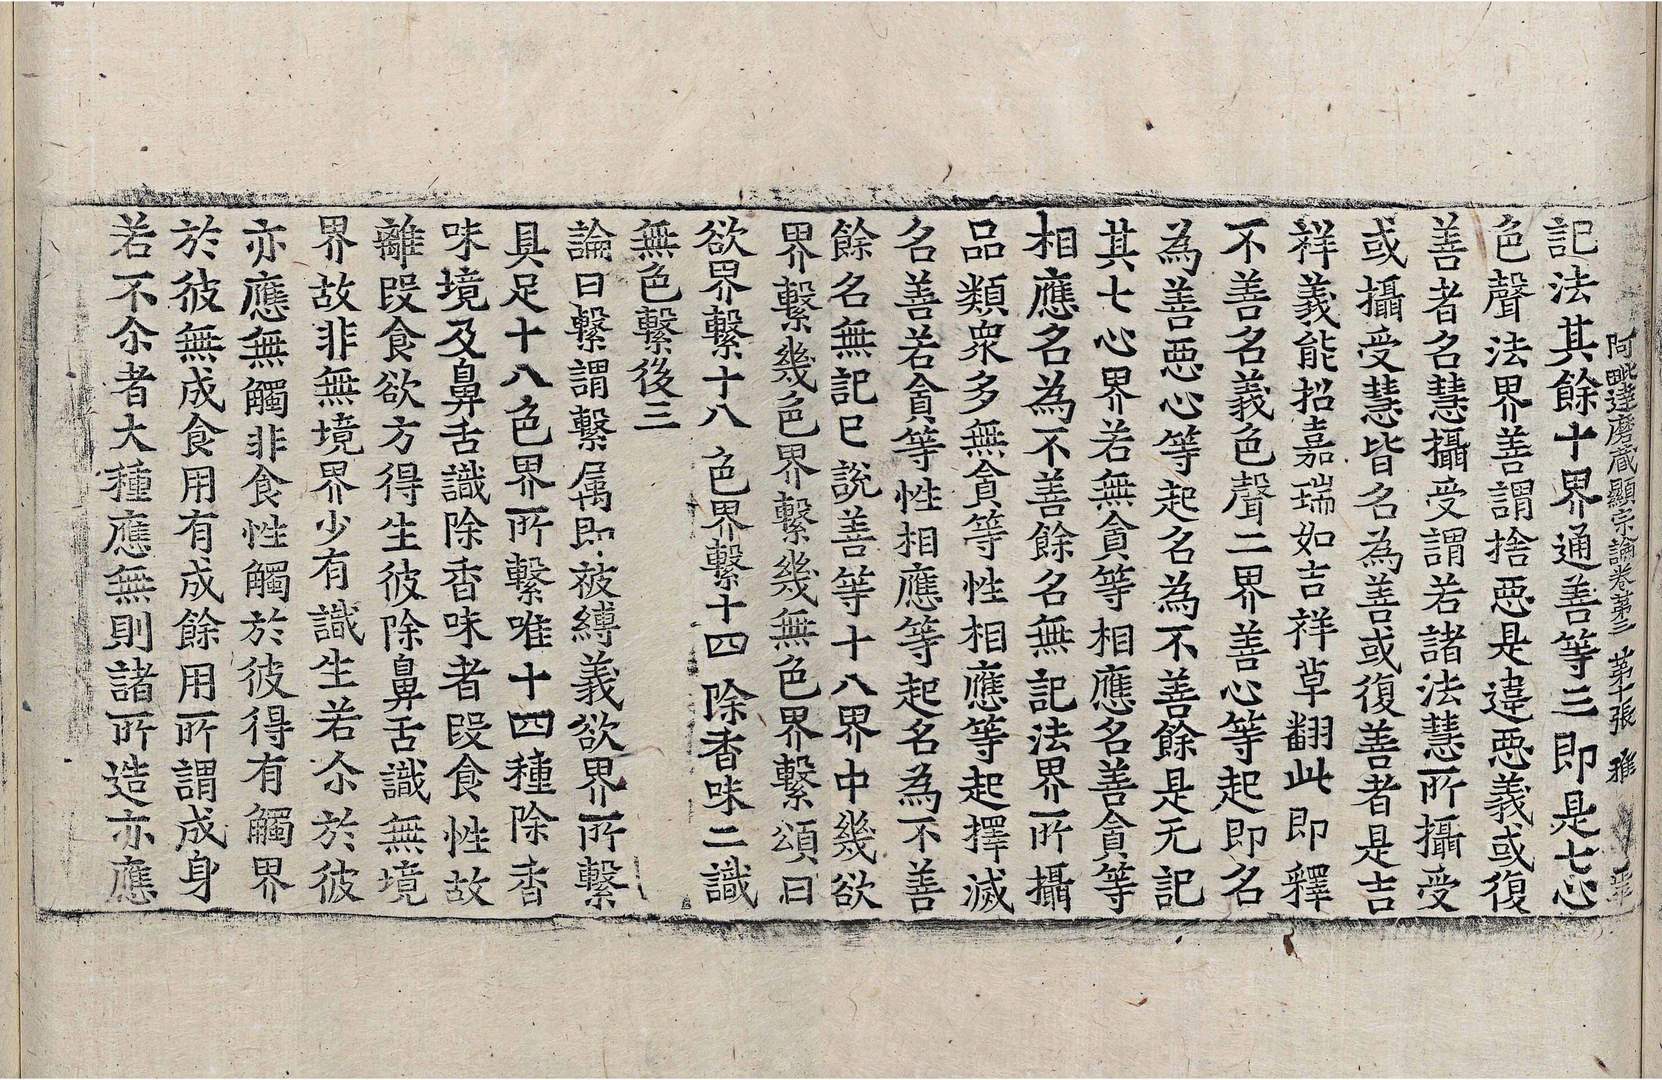 阿毗達磨藏顯宗論卷第三 第十張 雅
記法其餘十界通善等三即是七心
色聲法界善謂捨惡是違惡義或復
善者名慧攝受謂若諸法慧所攝受
或攝受慧皆名為善或復善者是吉
祥義能招嘉瑞如吉祥草翻此即釋
不善名義色聲二界善心等起即名
為善惡心等起名為不善餘是无記
其七心界若無貪等相應名善貪等
相應名為不善餘名無記法界所攝
品類衆多無貪等性相應等起擇滅
名善若貪等性相應等起名為不善
餘名無記已說善等十八界中幾欲
界繫幾色界繫幾無色界繫頌曰
欲界繫十八 色界繫十四 除香味二識
無色繫後三
論曰繫謂繫屬即被縛義欲界所繫
具足十八色界所繫唯十四種除香
味境及鼻舌識除香味者段食性故
離段食欲方得生彼除鼻舌識無境
界故非無境界少有識生若尒於彼
亦應無觸非食性觸於彼得有觸界
於彼無成食用有成餘用所謂成身
若不尒者大種應無則諸所造亦應